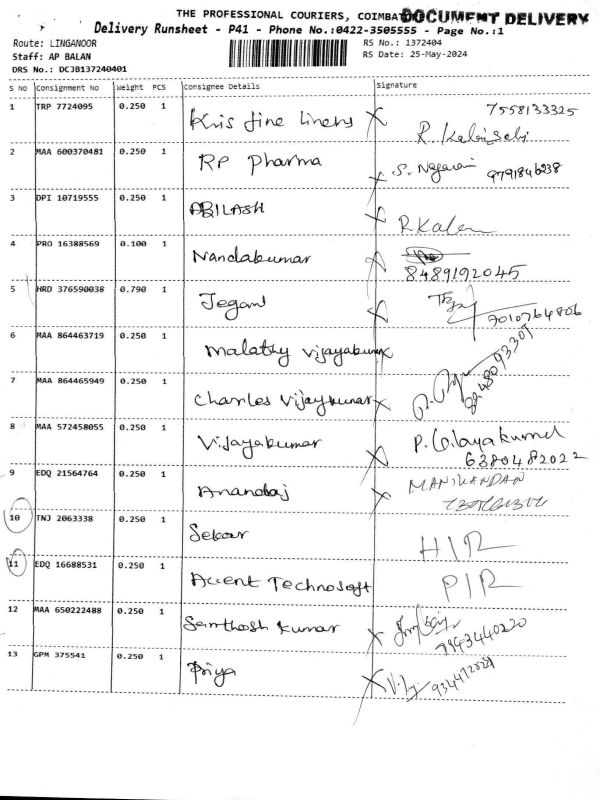 THE PROFESSIONAL COURIERS, COIMBAT
DOCUMENT DELIVERY
Delivery Runsheet - P41 - Phone No.:0422-3505555 - Page No.:1
Route: LINGANOOR
RS No.: 1372404
Staff: AP BALAN
RS Date: 25-May-2024
DRS No.: DCJB137240401
S No Consignment No Weight PCS Consignee Details Signature
1 TRP 7724095 0.250 1 Kris fine liners X 7558133325
R.
2 MAA 600370481 0.250 1 RP Pharma X S. Nagarani 9791846238
3 DPI 10719555 0.250 1 ABILASH X R Kala
4 PRO 16388569 0.100 1 Nandakumar X
8489192045
5 HRD 376590038 0.790 1 Jegani X 7010764806
6 MAA 864463719 0.250 1 Malathy Vijayakumar X
7 MAA 864465949 0.250 1 Charles Vijaykumar X
8 MAA 572458055 0.250 1 Vijayakumar X P.
6380482022
9 EDQ 21564764 0.250 1 Anandaj X MANIKANDAN
10 TNJ 2063338 0.250 1 Sekar H/R
11 EDQ 16688531 0.250 1 Accent Technosoft P/R
12 MAA 650222488 0.250 1 Santhosh Kumar X
13 GPM 375541 0.250 1 Priya X